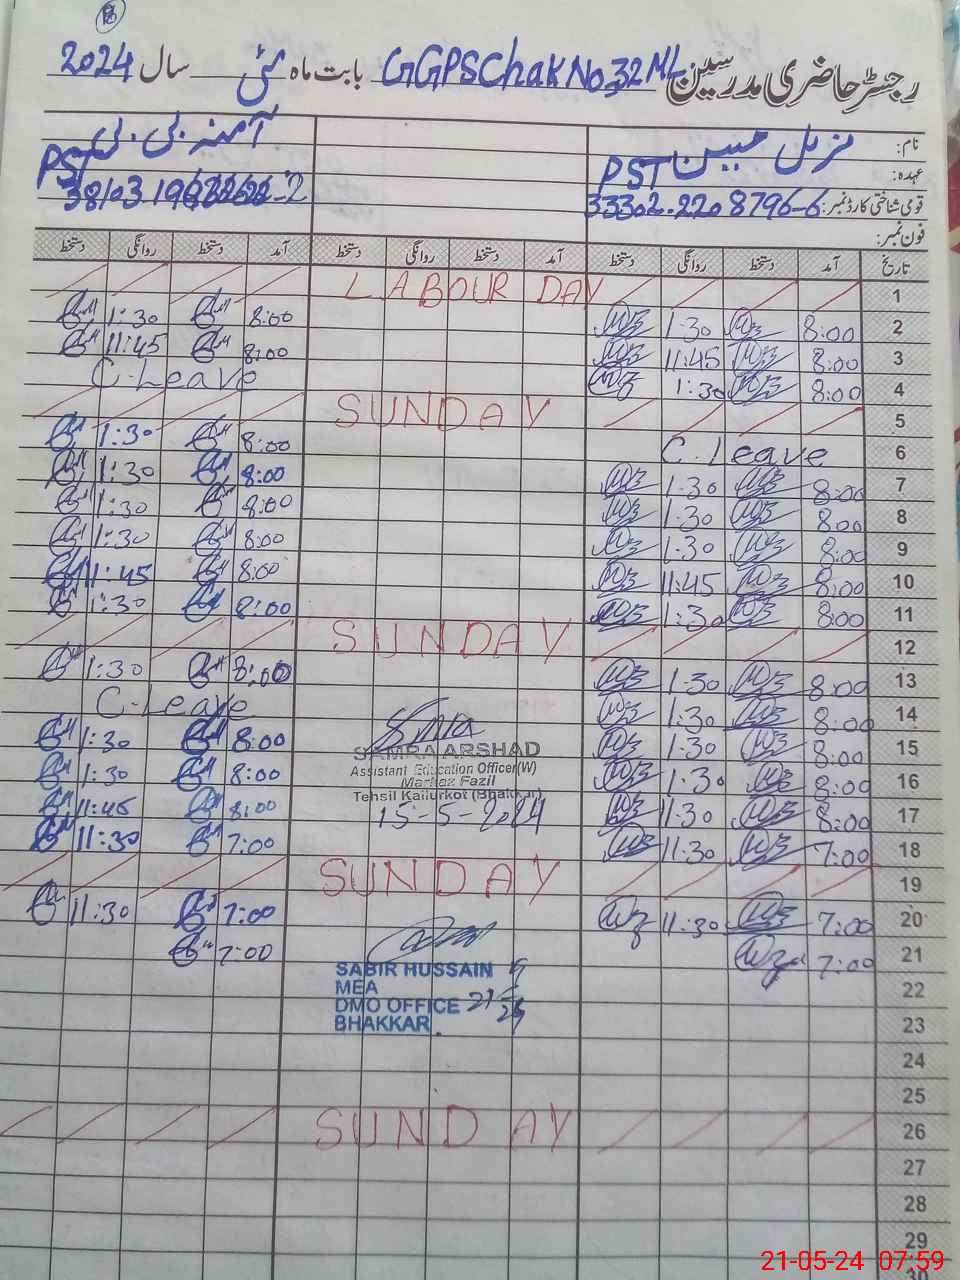 رجسٹر حاضری مدرسین GGPSChak No.32ML بابت ماہ مئی سال 2024
نام: مزمل مبین آمنہ بی بی
عہدہ: PST PST
قومی شناختی کارڈ نمبر: 33302.2208796-6
فون نمبر:
تاریخ آمد دستخط روانگی دستخط آمد دستخط روانگی دستخط آمد دستخط روانگی دستخط
1 LABOUR DAY
2 8:00 1:30 8:00 1:30
3 8:00 11:45 8:00 11:45
4 8:00 1:30 C-Leave
5 SUNDAY
6 C.Leave 8:00 1:30
7 8:00 1:30 8:00 1:30
8 8:00 1:30 8:00 1:30
9 8:00 1:30 8:00 1:30
10 8:00 11:45 8:00 11:45
11 8:00 1:30 8:00 1:30
12 SUNDAY
13 8:00 1:30 8:00 1:30
14 8:00 1:30 C-Leave
15 8:00 1:30 8:00 1:30
16 8:00 1:30 8:00 1:30
17 8:00 11:30 8:00 11:45
18 7:00 11:30 7:00 11:30
SAMRA ARSHAD
Assistant Education Officer(W)
Markaz Fazil
Tehsil Kallurkot (Bhakkar)
15-5-2024
19 SUNDAY
20 7:00 11:30 7:00 11:30
21 7:00 7:00
SABIR HUSSAIN
MEA
DMO OFFICE
BHAKKAR
22
23
24
25
26 SUNDAY
27
28
29
30
21-05-24 07:59